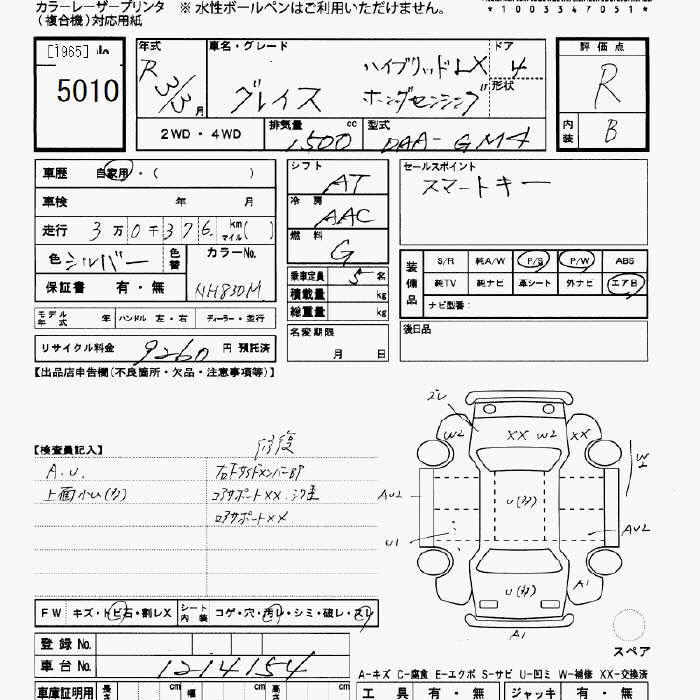 カラーレーザープリンタ ※ 水性ボールペンはご利用いただけません。
(複合機)対応用紙
*1003347051*
[1965]
5010
年式 R 3/3 月
車名・グレード ハイブリッドLX
グレイス ホンダセンシング
ドア 4
形状
評価点 R
内装 B
2WD・4WD
排気量 1,500 cc
型式 DAA-GM4
車歴 自家用・( )
車検 年 月
走行 3万0千376 km マイル( )
色 シルバー 色替 カラーNo. NH830M
保証書 有・無
モデル年式 年 ハンドル 左・右 ディーラー・並行
リサイクル料金 9260 円 預託済
シフト AT
冷房 AAC
燃料 G
乗車定員 5 名
積載量 kg
総重量 kg
名変期限
月 日
セールスポイント
スマートキー
装備品 S/R 純A/W P/S P/W ABS
純TV 純ナビ 革シート 外ナビ エアB
ナビ型番:
後日品
【出品店申告欄(不良箇所・欠品・注意事項等)】
【検査員記入】 修復
A.U. 右Fサイドメンバー
上面小U(多) コアサポートXX.
ロアサポートXX
ズレ
W2 XX W2 XX
W2
AU2 U(多)
U1 AU2
U(多) A1
A1
スペア
FW キズ・トビ石・割レX シート内装 コゲ・穴・汚レ・シミ・破レ・スレ
登録 No.
車台 No. 1214154
A-キズ C-腐食 E-エクボ S-サビ U-凹ミ W-補修 XX-交換済
車庫証明用 長さ cm 幅 cm 高さ cm
工具 有・無 ジャッキ 有・無